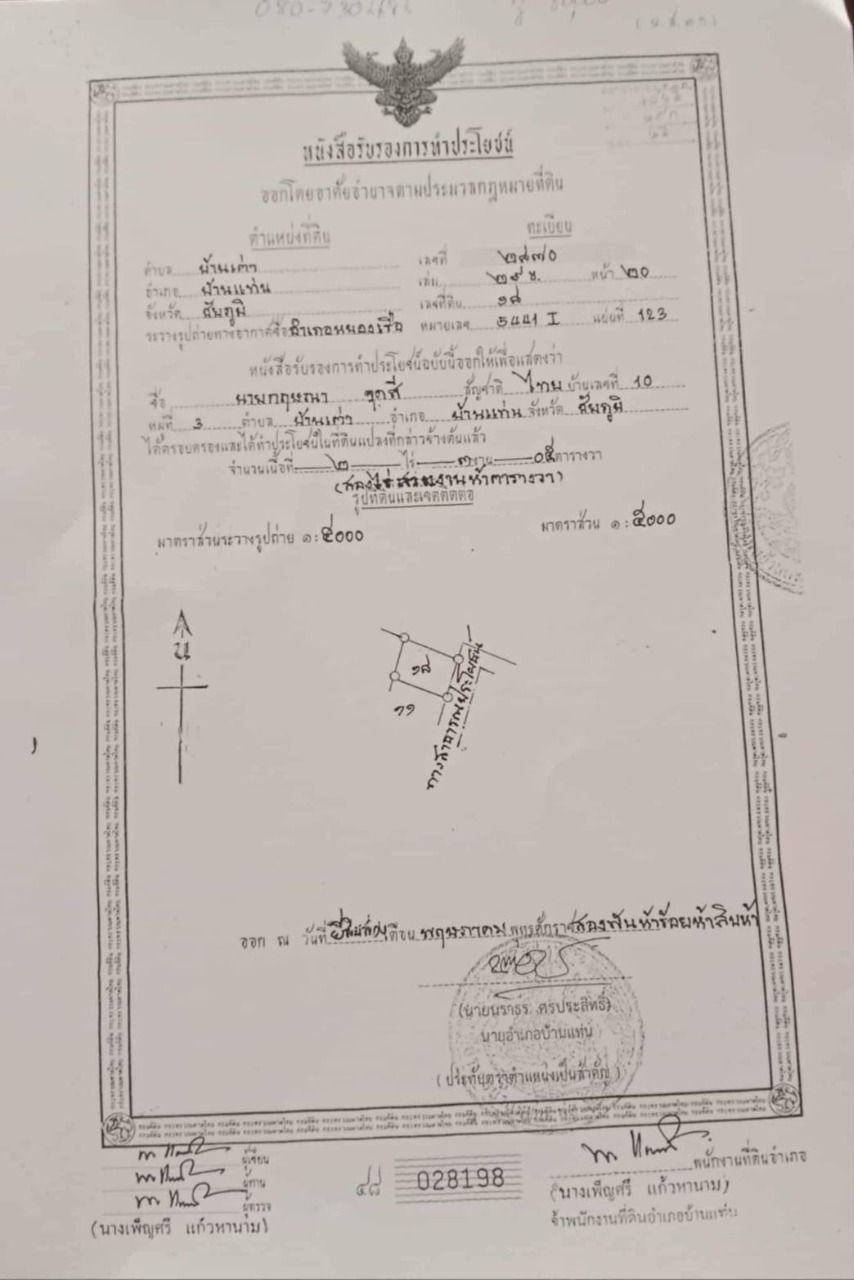 (น.ส.๓ก)
หนังสือรับรองการทำประโยชน์
ออกโดยอาศัยอำนาจตามประมวลกฎหมายที่ดิน
ตำแหน่งที่ดิน
ทะเบียน
ตำบล บ้านเต่า
เลขที่ ๒๙๗๐
อำเภอ บ้านแท่น
เล่ม ๒๙ข. หน้า ๒๐
จังหวัด ชัยภูมิ
เลขที่ดิน ๑๘
ระวางรูปถ่ายทางอากาศชื่อ อำเภอหนองเรือ หมายเลข 5441 I แผ่นที่ 123
หนังสือรับรองการทำประโยชน์ฉบับนี้ออกให้เพื่อแสดงว่า
ชื่อ นายกฤษณา สัญชาติ ไทย บ้านเลขที่ 10
หมู่ที่ 3 ตำบล บ้านเต่า อำเภอ บ้านแท่น จังหวัด ชัยภูมิ
ได้ครอบครองและได้ทำประโยชน์ในที่ดินแปลงที่กล่าวข้างต้นแล้ว
จำนวนเนื้อที่ ๒ ไร่ ๓ งาน ๐๕ ตารางวา
(สองไร่สามงานห้าตารางวา)
รูปที่ดินและเขตติดต่อ
มาตราส่วนระวางรูปถ่าย ๑:๕๐๐๐
มาตราส่วน ๑:๕๐๐๐
น
๑๘
๑๑
ทางสาธารณประโยชน์
ออก ณ วันที่ เดือน พฤษภาคม พุทธศักราช สองพันห้าร้อยห้าสิบห้า
(นายนราธร ศรประสิทธิ์)
นายอำเภอบ้านแท่น
(ประทับตราตำแหน่งเป็นสำคัญ)
ผู้เขียน
ผู้ทาน
ผู้ตรวจ
(นางเพ็ญศรี แก้วหานาม)
๔๘ 028198
พนักงานที่ดินอำเภอ
(นางเพ็ญศรี แก้วหานาม)
จ้าพนักงานที่ดินอำเภอบ้านแท่น